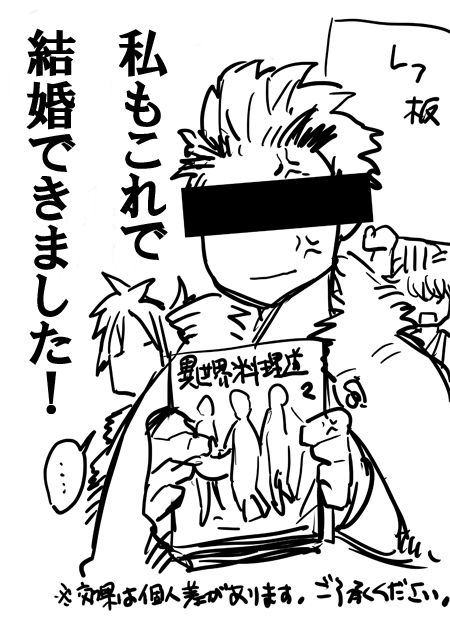 私もこれで
結婚できました！
レフ
板
異世界料理道
2
…
※効果は個人差があります。ご了承ください。